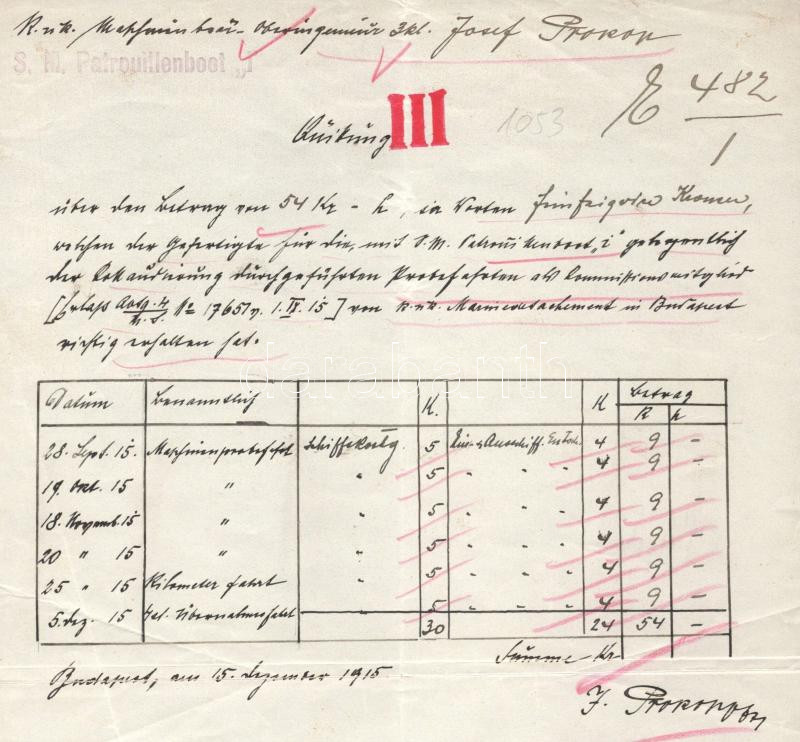 K. u. k. Maschinenbau- Oberingenieur 3kl. Josef Prokop
S. M. Patrouillenboot „i"
III
1053
E 482
1
Quittung
über den Betrag von 54 Kr – h, in Worten fünfzigvier Kronen,
welchen der Gefertigte für die, mit S. M. Patrouillenboot „i" gelegentlich
der durchgeführten Probefahrten als Kommissionsmitglied
[Erlaß No 1765/v. 1. IX. 15] von k. u. k. Marinedetachement in Budapest
richtig erhalten hat.
darabanth
Datum Benanntlich K. K Betrag
K h
28. Sept. 15. Maschinenprobefahrt Schiffskostg. 5 Ein- & Ausschiff. 4 9 –
19. Okt. 15 " " 5 " " " 4 9 –
18. Novemb. 15 " " 5 " " " 4 9 –
20 " 15 " " 5 " " " 4 9 –
25 " 15 Kilometerfahrt " 5 " " " 4 9 –
5. Dez. 15 Übernahmsfahrt " 5 " " " 4 9 –
30 24 54 –
Summe Kr
Budapest, am 15. Dezember 1915.
J. Prokop